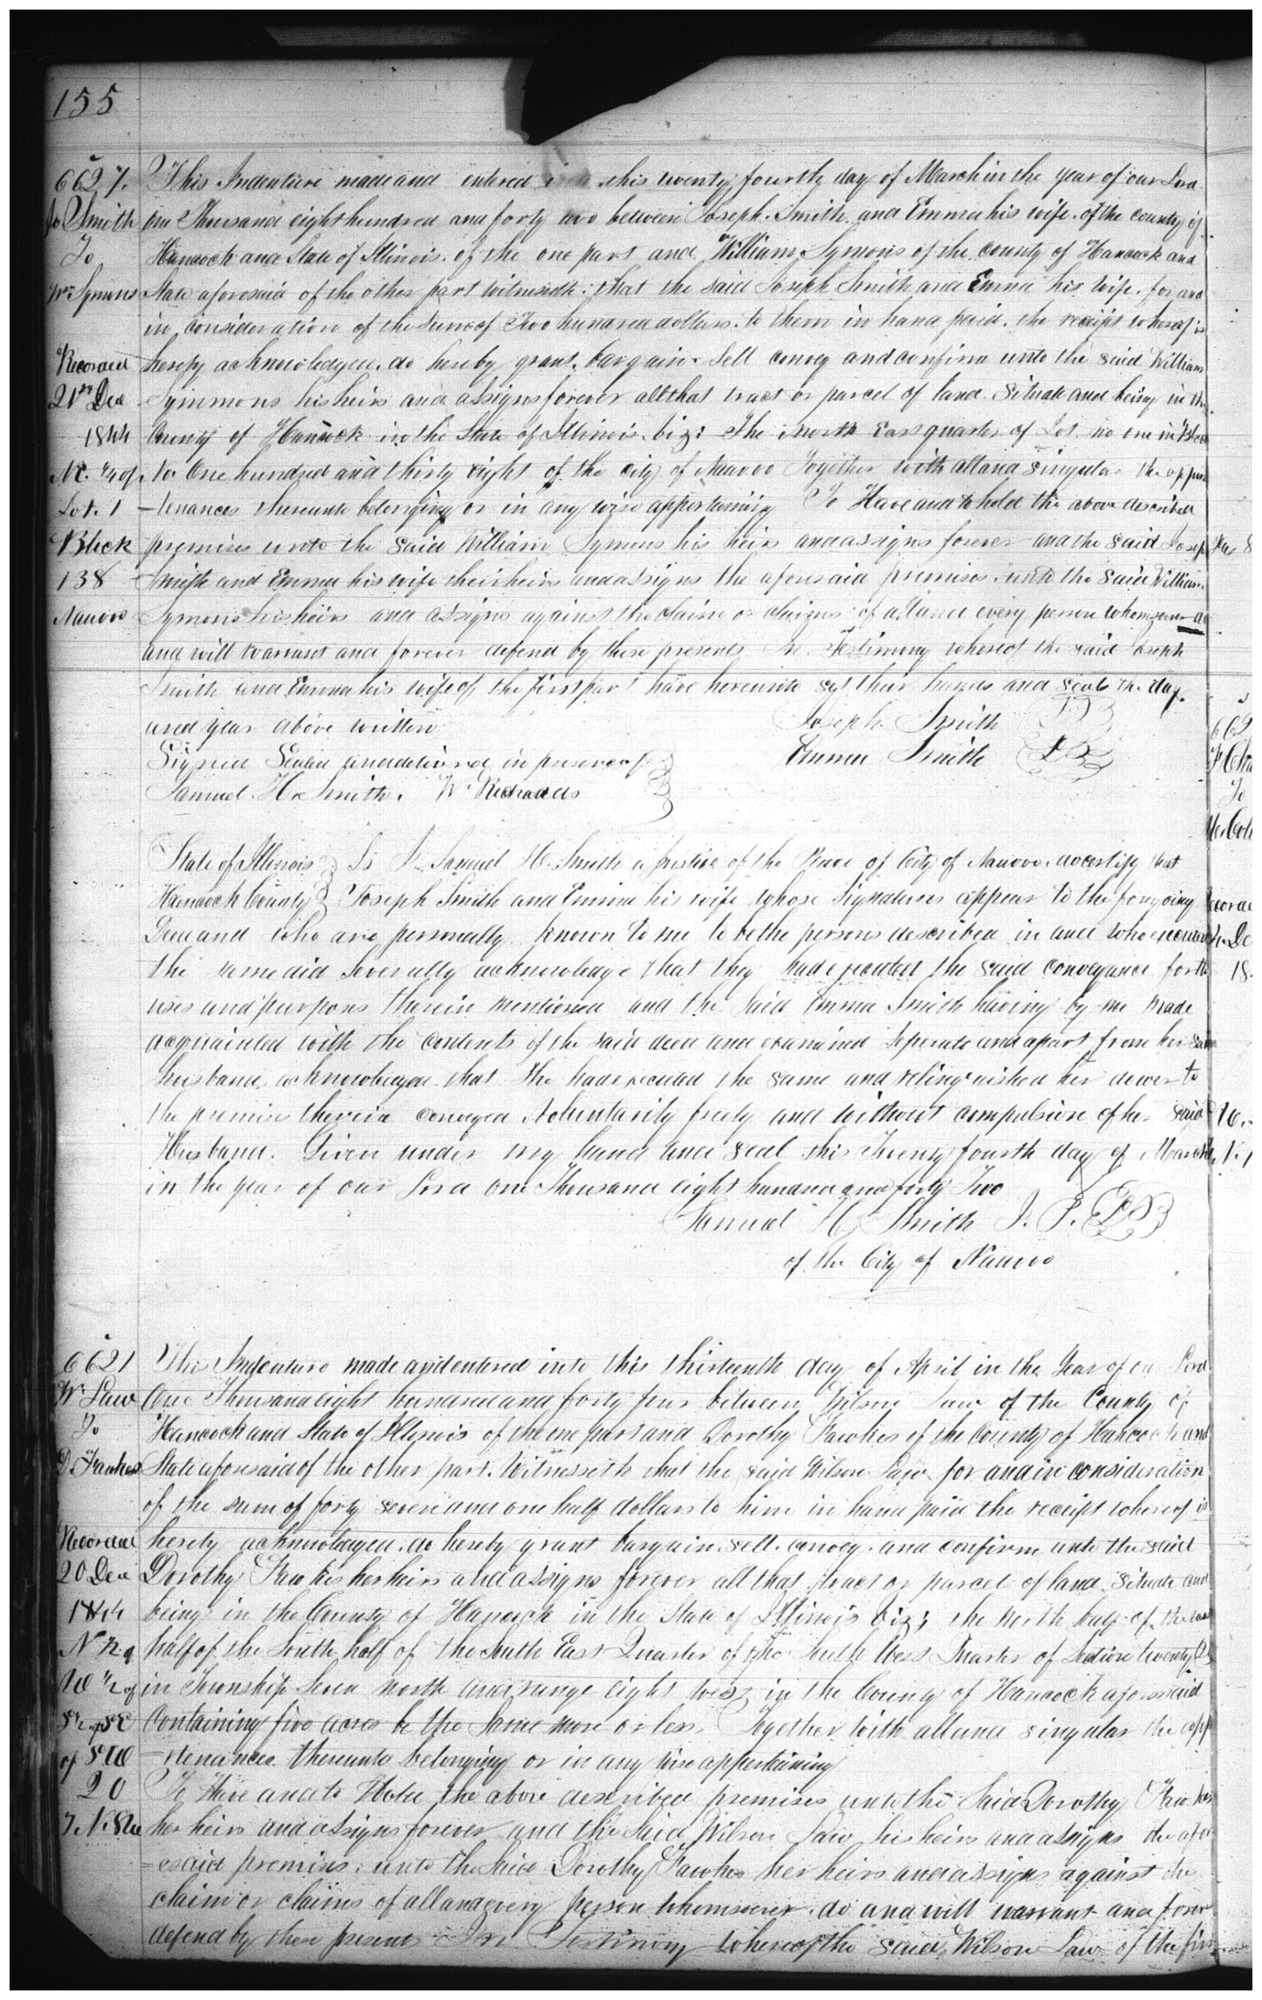 155
6627.
Jo Smith
To
Wm Symons
Recorded
21st Dec
1844
NE 1/4 of
Lot. 1
Block
138
Nauvoo
This Indenture made and entered this twenty fourth day of March in the year of our Lord
one Thousand eight hundred and forty two between Joseph Smith and Emma his wife of the county of
Hancock and State of Illinois of the one part and William Symons of the county of Hancock and
State aforesaid of the other part witnesseth that the said Joseph Smith and Emma his wife for and
in consideration of the sum of Two hundred dollars to them in hand paid the receipt whereof is
hereby acknowledged do hereby grant bargain Sell convey and confirm unto the said William
Symmons his heirs and assigns forever all that tract or parcel of land Situate and being in the
County of Hancock in the State of Illinois viz: The North East quarter of Lot no one in Block
No One hundred and thirty eight of the city of Nauvoo Together with all and singular the appur
-tenances thereunto belonging or in any wise appertaining To Have and to hold the above described
premises unto the said William Symons his heirs and assigns forever and the said Joseph
Smith and Emma his wife their heirs and assigns the aforesaid premises unto the said William
Symons his heirs and assigns against the claim or claims of all and every person whomsoever do
and will warrant and forever defend by these presents In Testimony whereof the said Joseph
Smith and Emma his wife of the first part have hereunto set their hands and seals the day
and year above written
Joseph Smith
Emma Smith
Signed Sealed and delivered in presence of
Samuel H. Smith. W. Richards
State of Illinois } Ss I Samuel H. Smith a justice of the Peace of City of Nauvoo do certify that
Hancock County } Joseph Smith and Emma his wife whose signatures appear to the forgoing
Deed and who are personally known to me to be the persons described in and who executed
the same did severally acknowledge that they had executed the said conveyance for the
uses and purposes therein mentioned and the said Emma Smith having by me made
acquainted with the contents of the said deed and examined seperate and apart from her said
husband acknowledged that She had executed the same and relinquished her dower to
the premises therein conveyed voluntarily freely and without compulsion of her said
Husband. Given under my hand and seal this Twenty fourth day of March
in the year of our Lord one Thousand eight hundred and forty Two
Samuel H. Smith J. P.
of the City of Nauvoo
6621
W. Law
To
D Fawkes
Recorded
20 Dec
1844
N 1/2 of
W 1/2 of
S 1/2 of SE
of SW
20
7 N. 8W
This Indenture made and entered into this thirteenth day of April in the Year of our Lord
One Thousand eight hundred and forty four between Wilson Law of the County of
Hancock and State of Illinois of the one part and Dorothy Fawkes of the County of Hancock and
State aforesaid of the other part. Witnesseth that the said Wilson Law for and in consideration
of the sum of forty seven and one half dollars to him in hand paid the receipt whereof is
hereby acknowledged do hereby grant bargain sell convey and confirm unto the said
Dorothy Fawkes her heirs and assigns forever all that tract or parcel of land Situate and
being in the County of Hancock in the State of Illinois viz: the North half of the
half of the South half of the South East Quarter of the South West Quarter of Section twenty
in Township Seven north and range eight west in the County of Hancock aforesaid
Containing five acres be the same more or less. Together with all and singular the app
-tenances thereunto belonging or in any wise appertaining
To Have and to Hold the above described premises unto the Said Dorothy Fawkes
her heirs and assigns forever and the said Wilson Law his heirs and assigns the afor
=esaid premises unto the said Dorothy Fawkes her heirs and assigns against the
claim or claims of all and every person whomsoever do and will warrant and forever
defend by these presents In Testimony whereof the said Wilson Law of the first